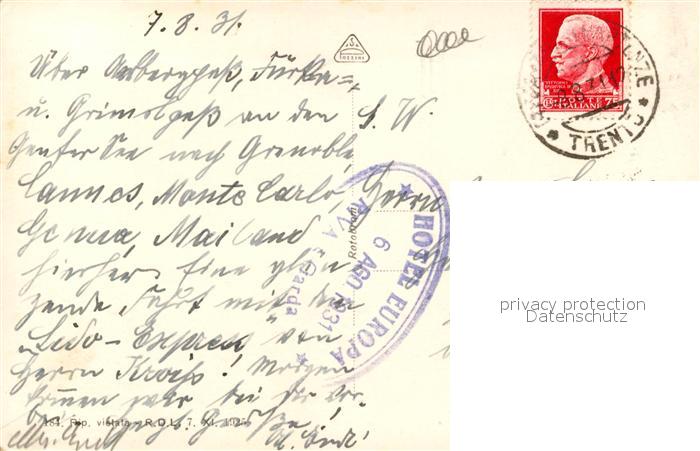 7. 8. 31.
Über Arlbergpaß, Furka-,
u. Grimselpaß an den
Genfer See nach Grenoble,
Cannes, Monte Carlo,
Genua, Mailand
hierher. Eine glän-
zende Fahrt mit dem
"Lido-Express" von
Herrn Kroiß! Morgen
kommen wir bei der
S. W.
Herrn
HOTEL EUROPA
6 AGO 1931
RIVA s/Garda
Rotokrom
TRENTO
ITALIANE
184. Rip. vietata - R.D.L. 7. XI. 1925
privacy protection
Datenschutz